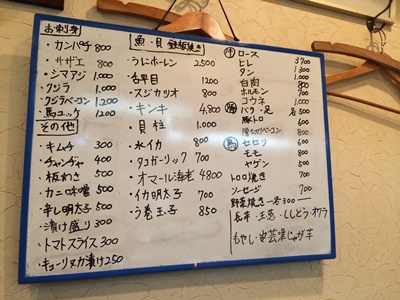 お刺身
・カンパチ 800
・サザエ 800
・シマアジ 1,000
・クジラ 1,000
・クジラベーコン 1,200
・馬ユッケ 1,200
その他
・キムチ 300
・チャンヂャ 400
・板わさ 500
・カニ味噌 500
・辛し明太子 500
・漬け盛り 300
・トマトスライス 300
・キューリヌカ漬け 250
魚・貝 鉄板焼き
・うにホーレン 2500
・舌平目 1200
・スジカツオ 800
・キンキ 4,800
・貝柱 1,000
・水イカ 800
・タコガーリック 700
・オマール海老 4800
・イカ明太子 700
・う巻玉子 850
牛 ロース
ヒレ 3700
タン 1,300
白肉 800
ホルモン 700
コウネ 1,000
バラ・足 各500
豚トロ 600
800
鳥 セセリ 600
モモ 800
ヤゲン 500
トロロ焼き 700
ソーセージ 700
野菜焼き 一各300
長芋・玉葱・ししとう・オクラ
もやし・安芸津じゃが芋